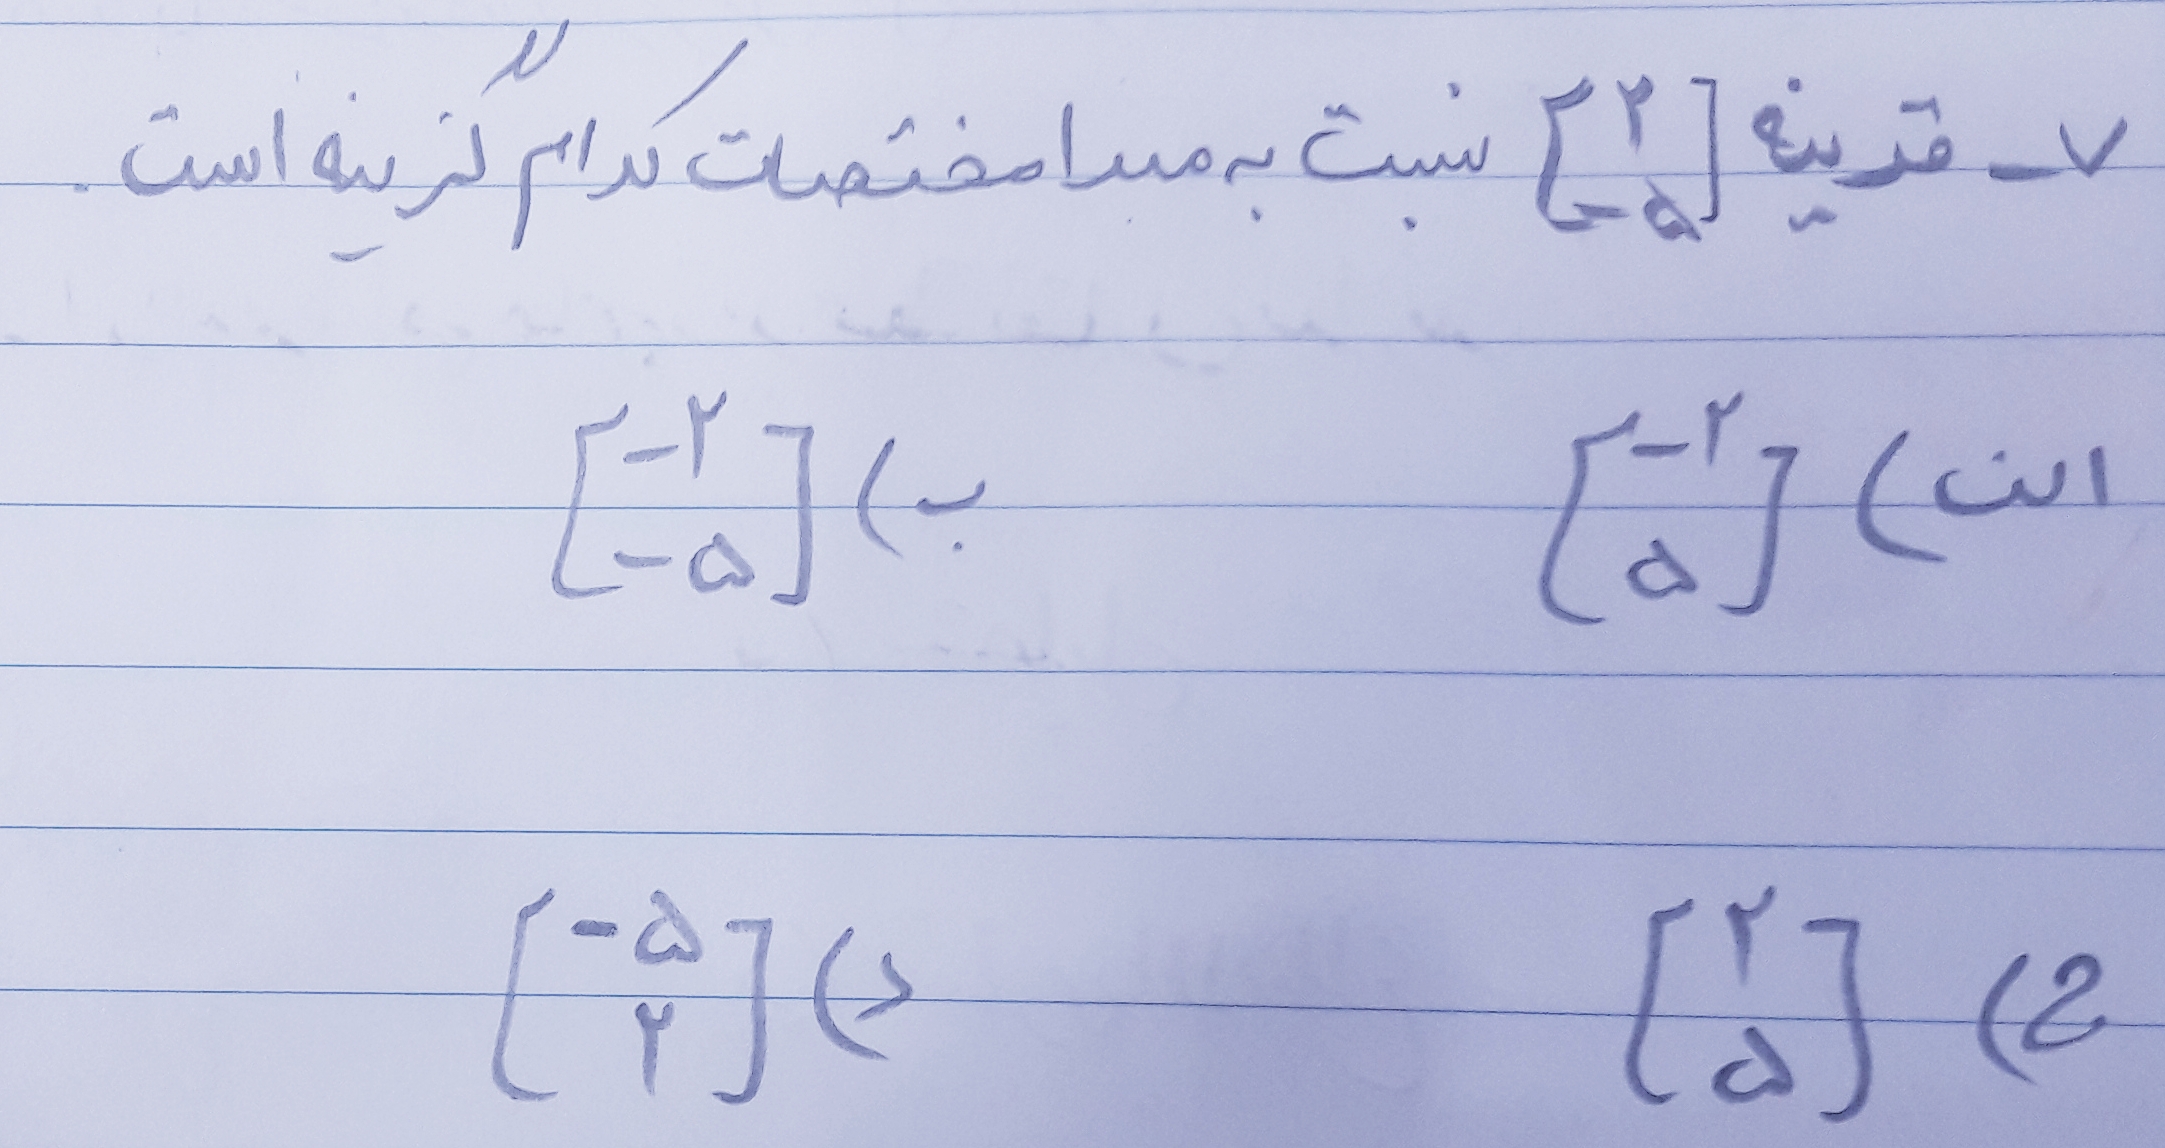 ۷- قرینه [۲ -۵] نسبت به مبدا مختصات کدام گزینه است.
الف) [-۲ ۵] ب) [-۲ -۵]
ج) [۲ ۵] د) [-۵ ۲]